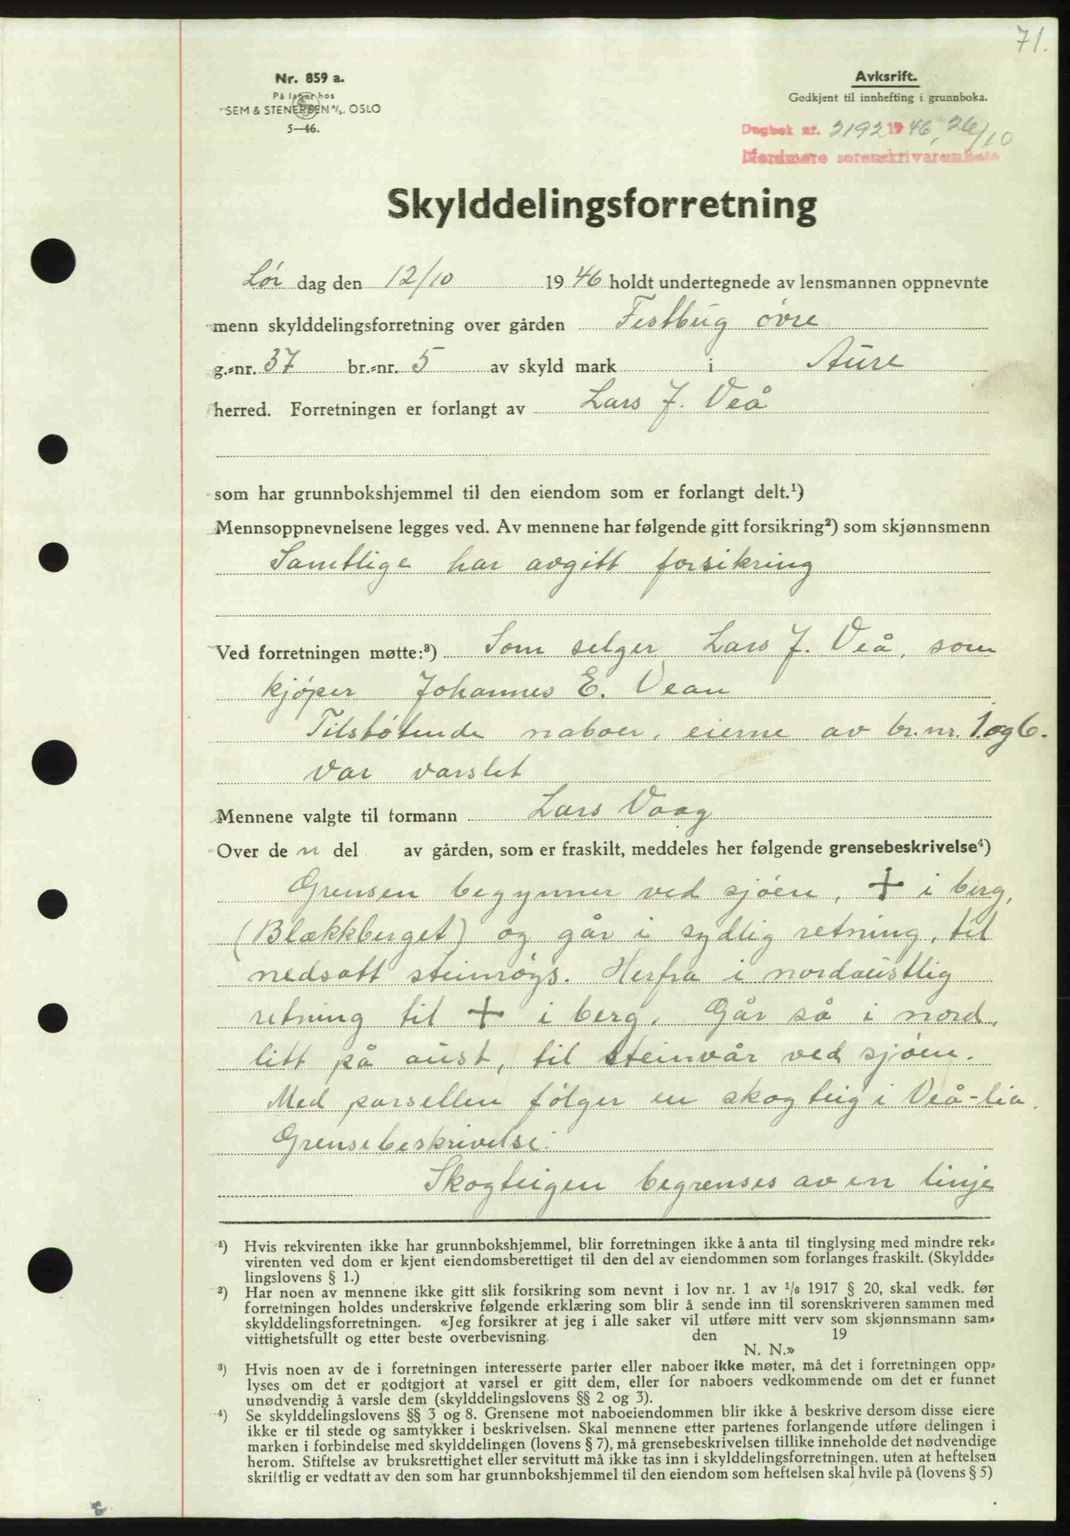 71.
Nr. 859 a.
På lager hos
SEM & STENERSEN A/S, OSLO
5—46.
Avksrift.
Godkjent til innhefting i grunnboka.
Dagbok nr. 2192 1946, 26/10
Nordmøre sorenskriverembete
Skylddelingsforretning
Lør dag den 12/10 1946 holdt undertegnede av lensmannen oppnevnte
menn skylddelingsforretning over gården Festbug øvre
g.-nr. 37 br.-nr. 5 av skyld mark i Aure
herred. Forretningen er forlangt av Lars J. Veå
som har grunnbokshjemmel til den eiendom som er forlangt delt.¹)
Mennsoppnevnelsene legges ved. Av mennene har følgende gitt forsikring²) som skjønnsmenn
Samtlige har avgitt forsikring
Ved forretningen møtte:³) Som selger Lars J. Veå, som
kjøper Johannes E. Vean
Tilstøtende naboer, eierne av br.nr. 1 og 6.
var varslet
Mennene valgte til formann Lars Vaag
Over de n del av gården, som er fraskilt, meddeles her følgende grensebeskrivelse⁴)
Grensen begynner ved sjøen, + i berg,
(Blækkberget) og går i sydlig retning, til
nedsatt steinrøys. Herfra i nordaustlig
retning til + i berg. Går så i nord,
litt på aust, til steinvår ved sjøen.
Med parsellen følger en skogteig i Veå-lia.
Grensebeskrivelse:
Skogteigen begrenses av en linje
¹) Hvis rekvirenten ikke har grunnbokshjemmel, blir forretningen ikke å anta til tinglysing med mindre rek-
virenten ved dom er kjent eiendomsberettiget til den del av eiendommen som forlanges fraskilt. (Skyldde-
lingslovens § 1.)
²) Har noen av mennene ikke gitt slik forsikring som nevnt i lov nr. 1 av 1/8 1917 § 20, skal vedk. før
forretningen holdes underskrive følgende erklæring som blir å sende inn til sorenskriveren sammen med
skylddelingsforretningen. «Jeg forsikrer at jeg i alle saker vil utføre mitt verv som skjønnsmann sam-
vittighetsfullt og etter beste overbevisning. den 19
N. N.»
³) Hvis noen av de i forretningen interesserte parter eller naboer ikke møter, må det i forretningen opp-
lyses om det er godtgjort at varsel er gitt dem, eller for naboers vedkommende om det er funnet
unødvendig å varsle dem (skylddelingslovens §§ 2 og 3).
⁴) Se skylddelingslovens §§ 3 og 8. Grensene mot naboeiendommen blir ikke å beskrive dersom disse eiere
ikke er til stede og samtykker i beskrivelsen. Skal mennene etter partenes forlangende utføre delingen i
marken i forbindelse med skylddelingen (lovens § 7), må grensebeskrivelsen tillike inneholde det nødvendige
herom. Stiftelse av bruksrettighet eller servitutt må ikke tas inn i skylddelingsforretningen, uten at heftelsen
skriftlig er vedtatt av den som har grunnbokshjemmel til den eiendom som heftelsen skal hvile på (lovens § 5)